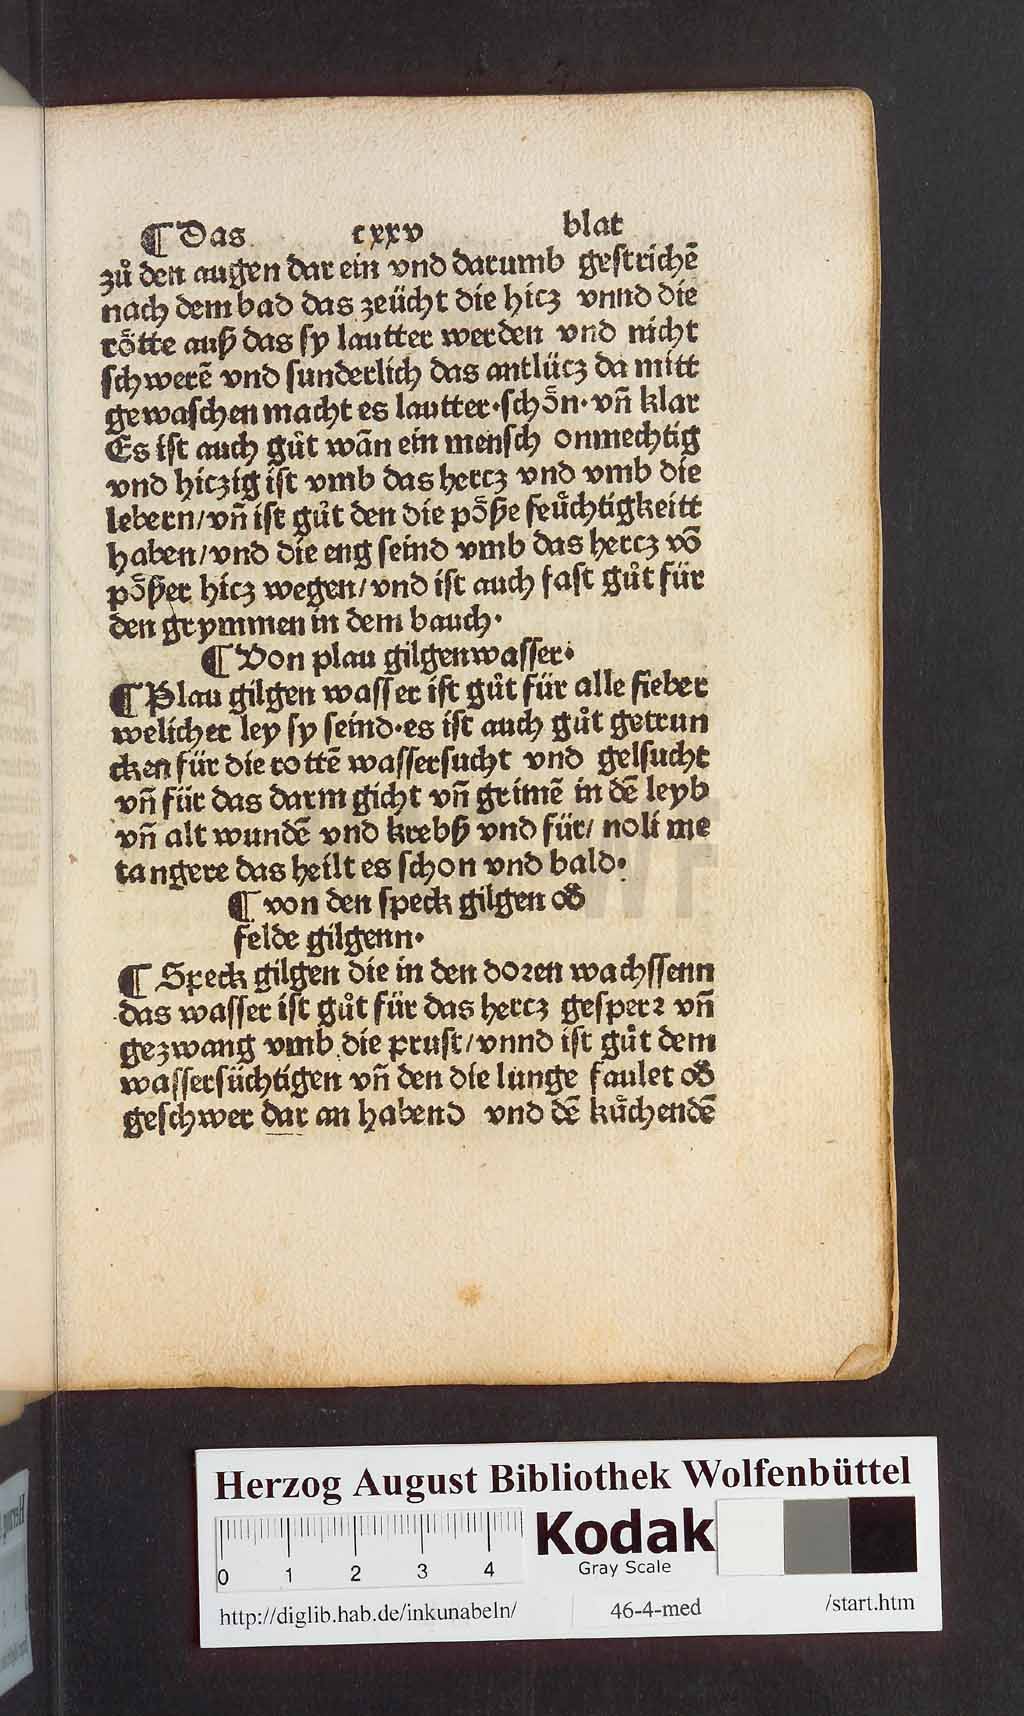 ¶ Das cxxv blat
zů den augen dar ein vnd darumb gestrichē
nach dem bad das zeücht die hicz vnnd die
rötte auß das sy lautter werden vnd nicht
schwerē vnd sunderlich das antlücz da mitt
gewaschen macht es lautter·schön·vñ klar
Es ist auch gůt wān ein mensch onmechtig
vnd hiczig ist vmb das hercz vnd vmb die
lebern/vñ ist gůt den die pöße feüchtigkeitt
haben/vnd die eng seind vmb das hercz vō
pößer hicz wegen/vnd ist auch fast gůt für
den grymmen in dem bauch·
¶ Von plau gilgenwasser·
¶ Plau gilgen wasser ist gůt für alle fieber
welicher ley sy seind·es ist auch gůt getrun
cken für die rottē wassersucht vnd gelsucht
vñ für das darm gicht vñ grimē in dē leyb
vñ alt wundē vnd krebß vnd für/ noli me
tangere das heilt es schon vnd bald·
¶ von den speck gilgen od̕
felde gilgenn·
¶ Speck gilgen die in den doꝛen wachssenn
das wasser ist gůt für das hercz gesperꝛ vñ
gezwang vmb die prust/vnnd ist gůt dem
wassersüchtigen vñ den die lunge faulet od̕
geschwer dar an habend vnd dē kůchendē
Herzog August Bibliothek Wolfenbüttel
0 1 2 3 4
Kodak
Gray Scale
http://diglib.hab.de/inkunabeln/ 46-4-med /start.htm